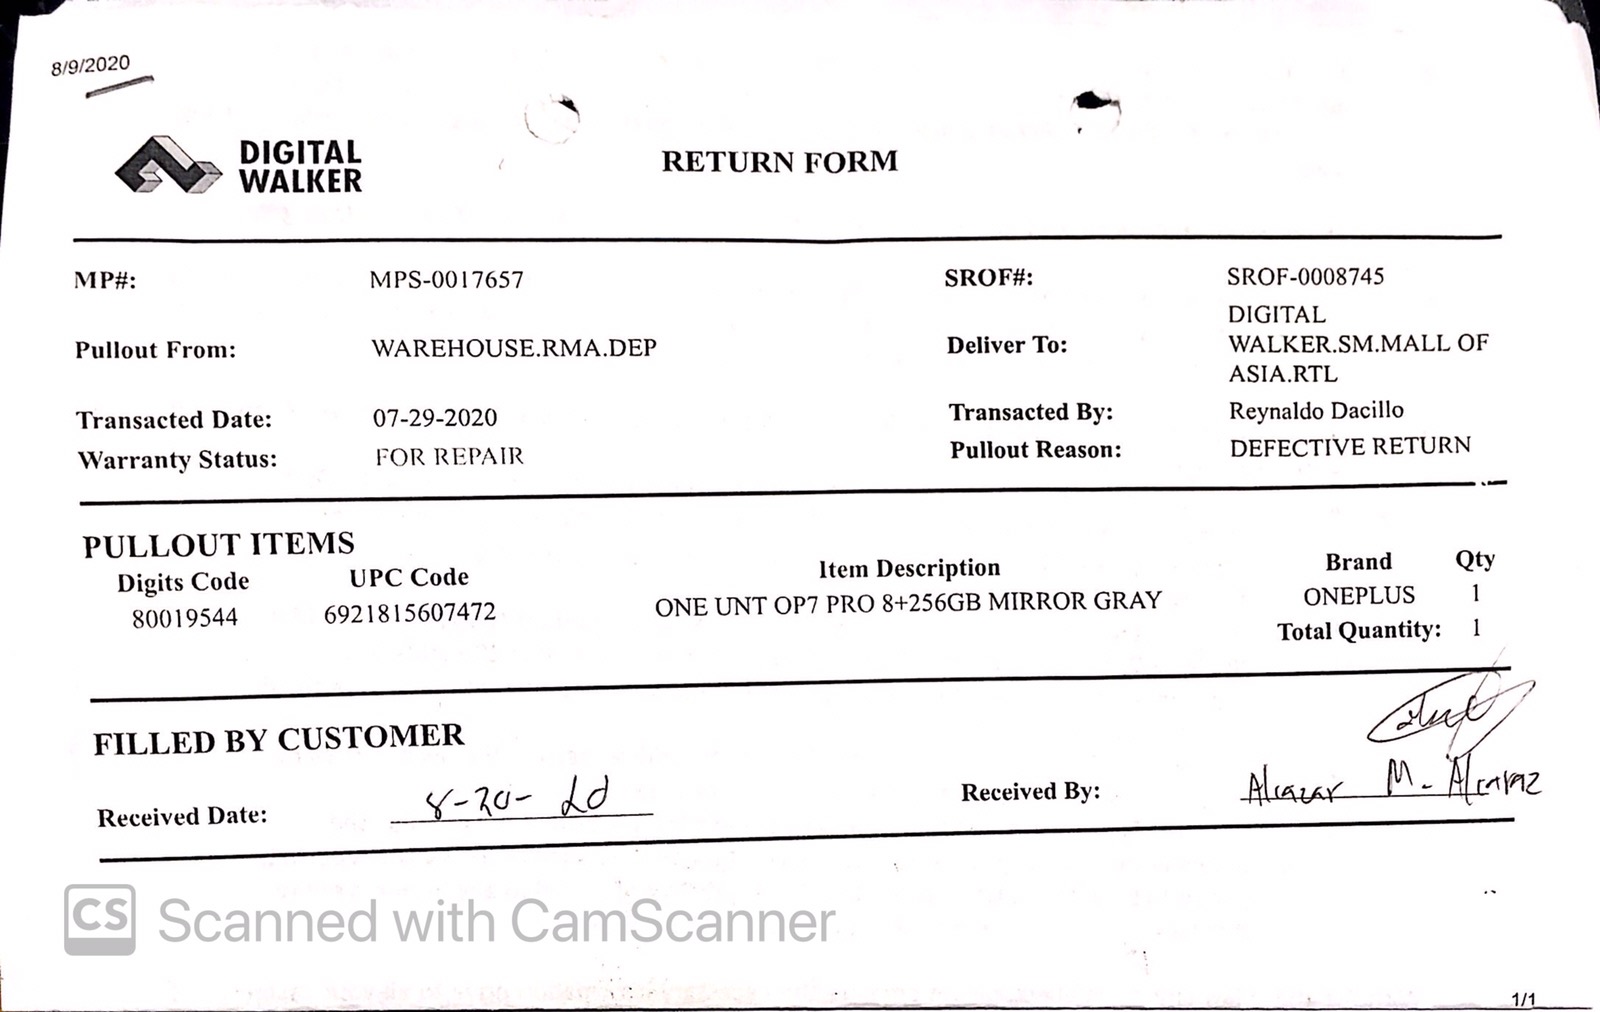 8/9/2020
DIGITAL
WALKER
RETURN FORM
MP#: MPS-0017657 SROF#: SROF-0008745
Pullout From: WAREHOUSE.RMA.DEP Deliver To: DIGITAL
WALKER.SM.MALL OF
ASIA.RTL
Transacted Date: 07-29-2020 Transacted By: Reynaldo Dacillo
Warranty Status: FOR REPAIR Pullout Reason: DEFECTIVE RETURN
PULLOUT ITEMS
Digits Code UPC Code Item Description Brand Qty
80019544 6921815607472 ONE UNT OP7 PRO 8+256GB MIRROR GRAY ONEPLUS 1
Total Quantity: 1
FILLED BY CUSTOMER
Received Date: 8-20- Received By: Alcazar M. Alcaraz
CS Scanned with CamScanner
1/1